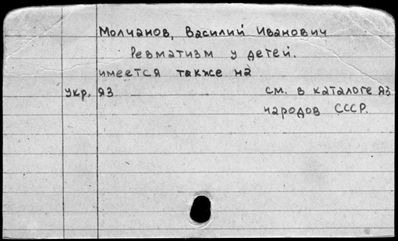 Молчанов, Василий Иванович
Ревматизм у детей.
имеется также на
укр. яз см. в каталоге яз
народов СССР.